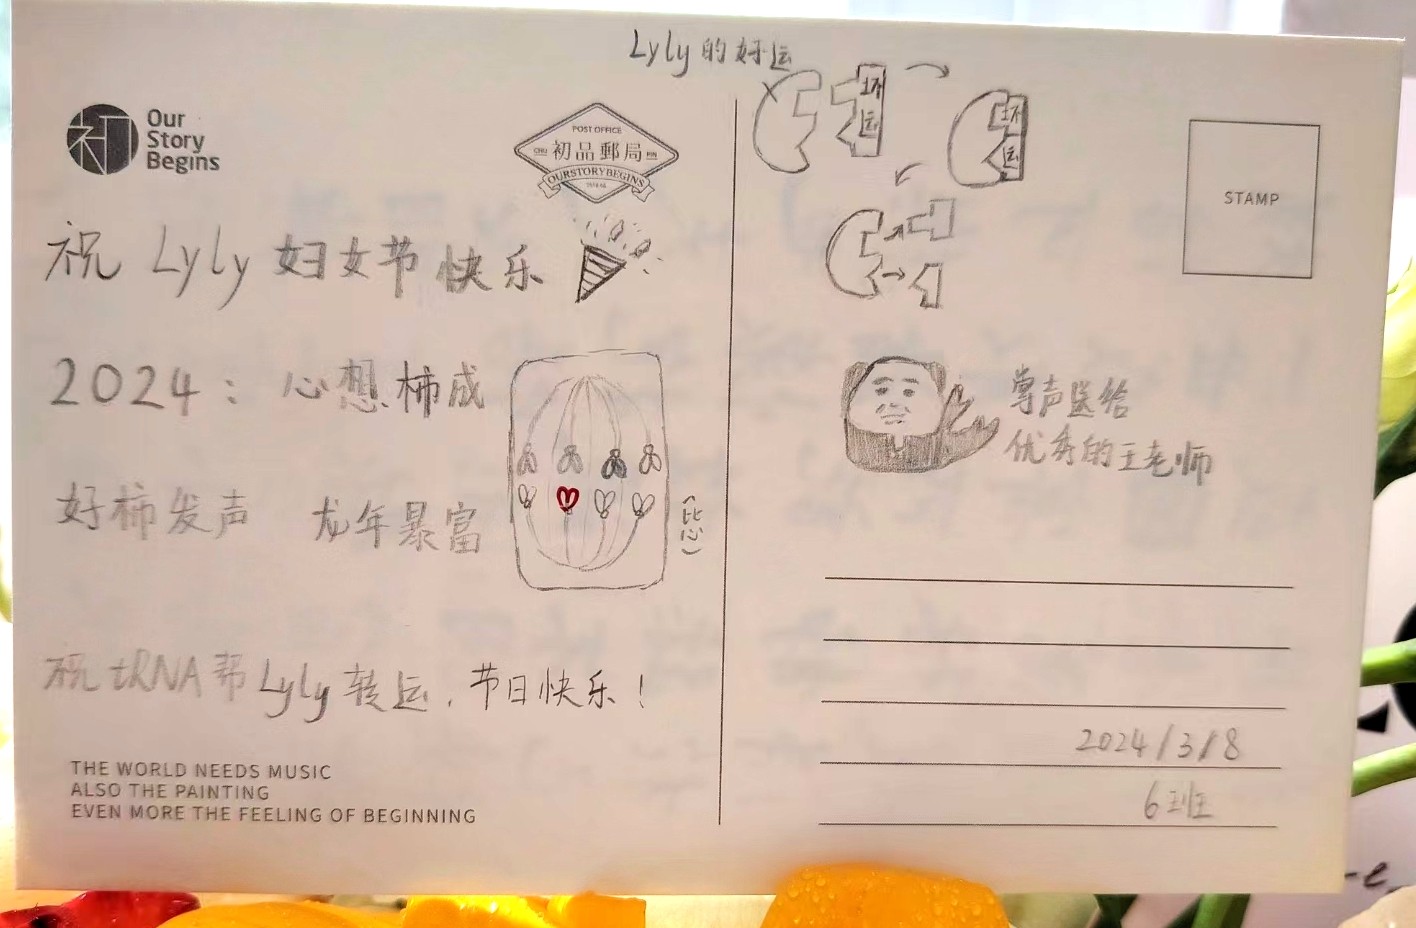 Lyly的好运
坏运
坏运
Our
Story
Begins
POST OFFICE
CHU 初品郵局 PIN
OURSTORYBEGINS
STAMP
祝 Lyly 妇女节快乐
2024：心想柿成
好柿发声 龙年暴富
(比心)
掌声送给
优秀的王老师
祝tRNA帮Lyly转运，节日快乐！
THE WORLD NEEDS MUSIC
ALSO THE PAINTING
EVEN MORE THE FEELING OF BEGINNING
2024/3/8
6班